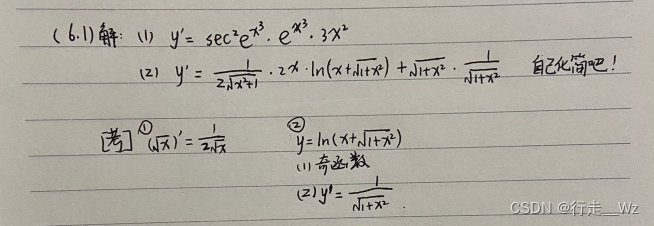 (6.1)解: (1) y' = sec²e^{x³}·e^{x³}·3x²
(2) y' = \frac{1}{2\sqrt{x²+1}}·2x·ln(x+\sqrt{1+x²})+\sqrt{1+x²}·\frac{1}{\sqrt{1+x²}} 自己化简吧!
[考] ① (\sqrt{x})' = \frac{1}{2\sqrt{x}} ② y=ln(x+\sqrt{1+x²})
(1) 奇函数
(2) y' = \frac{1}{\sqrt{1+x²}}.
CSDN @行走__Wz